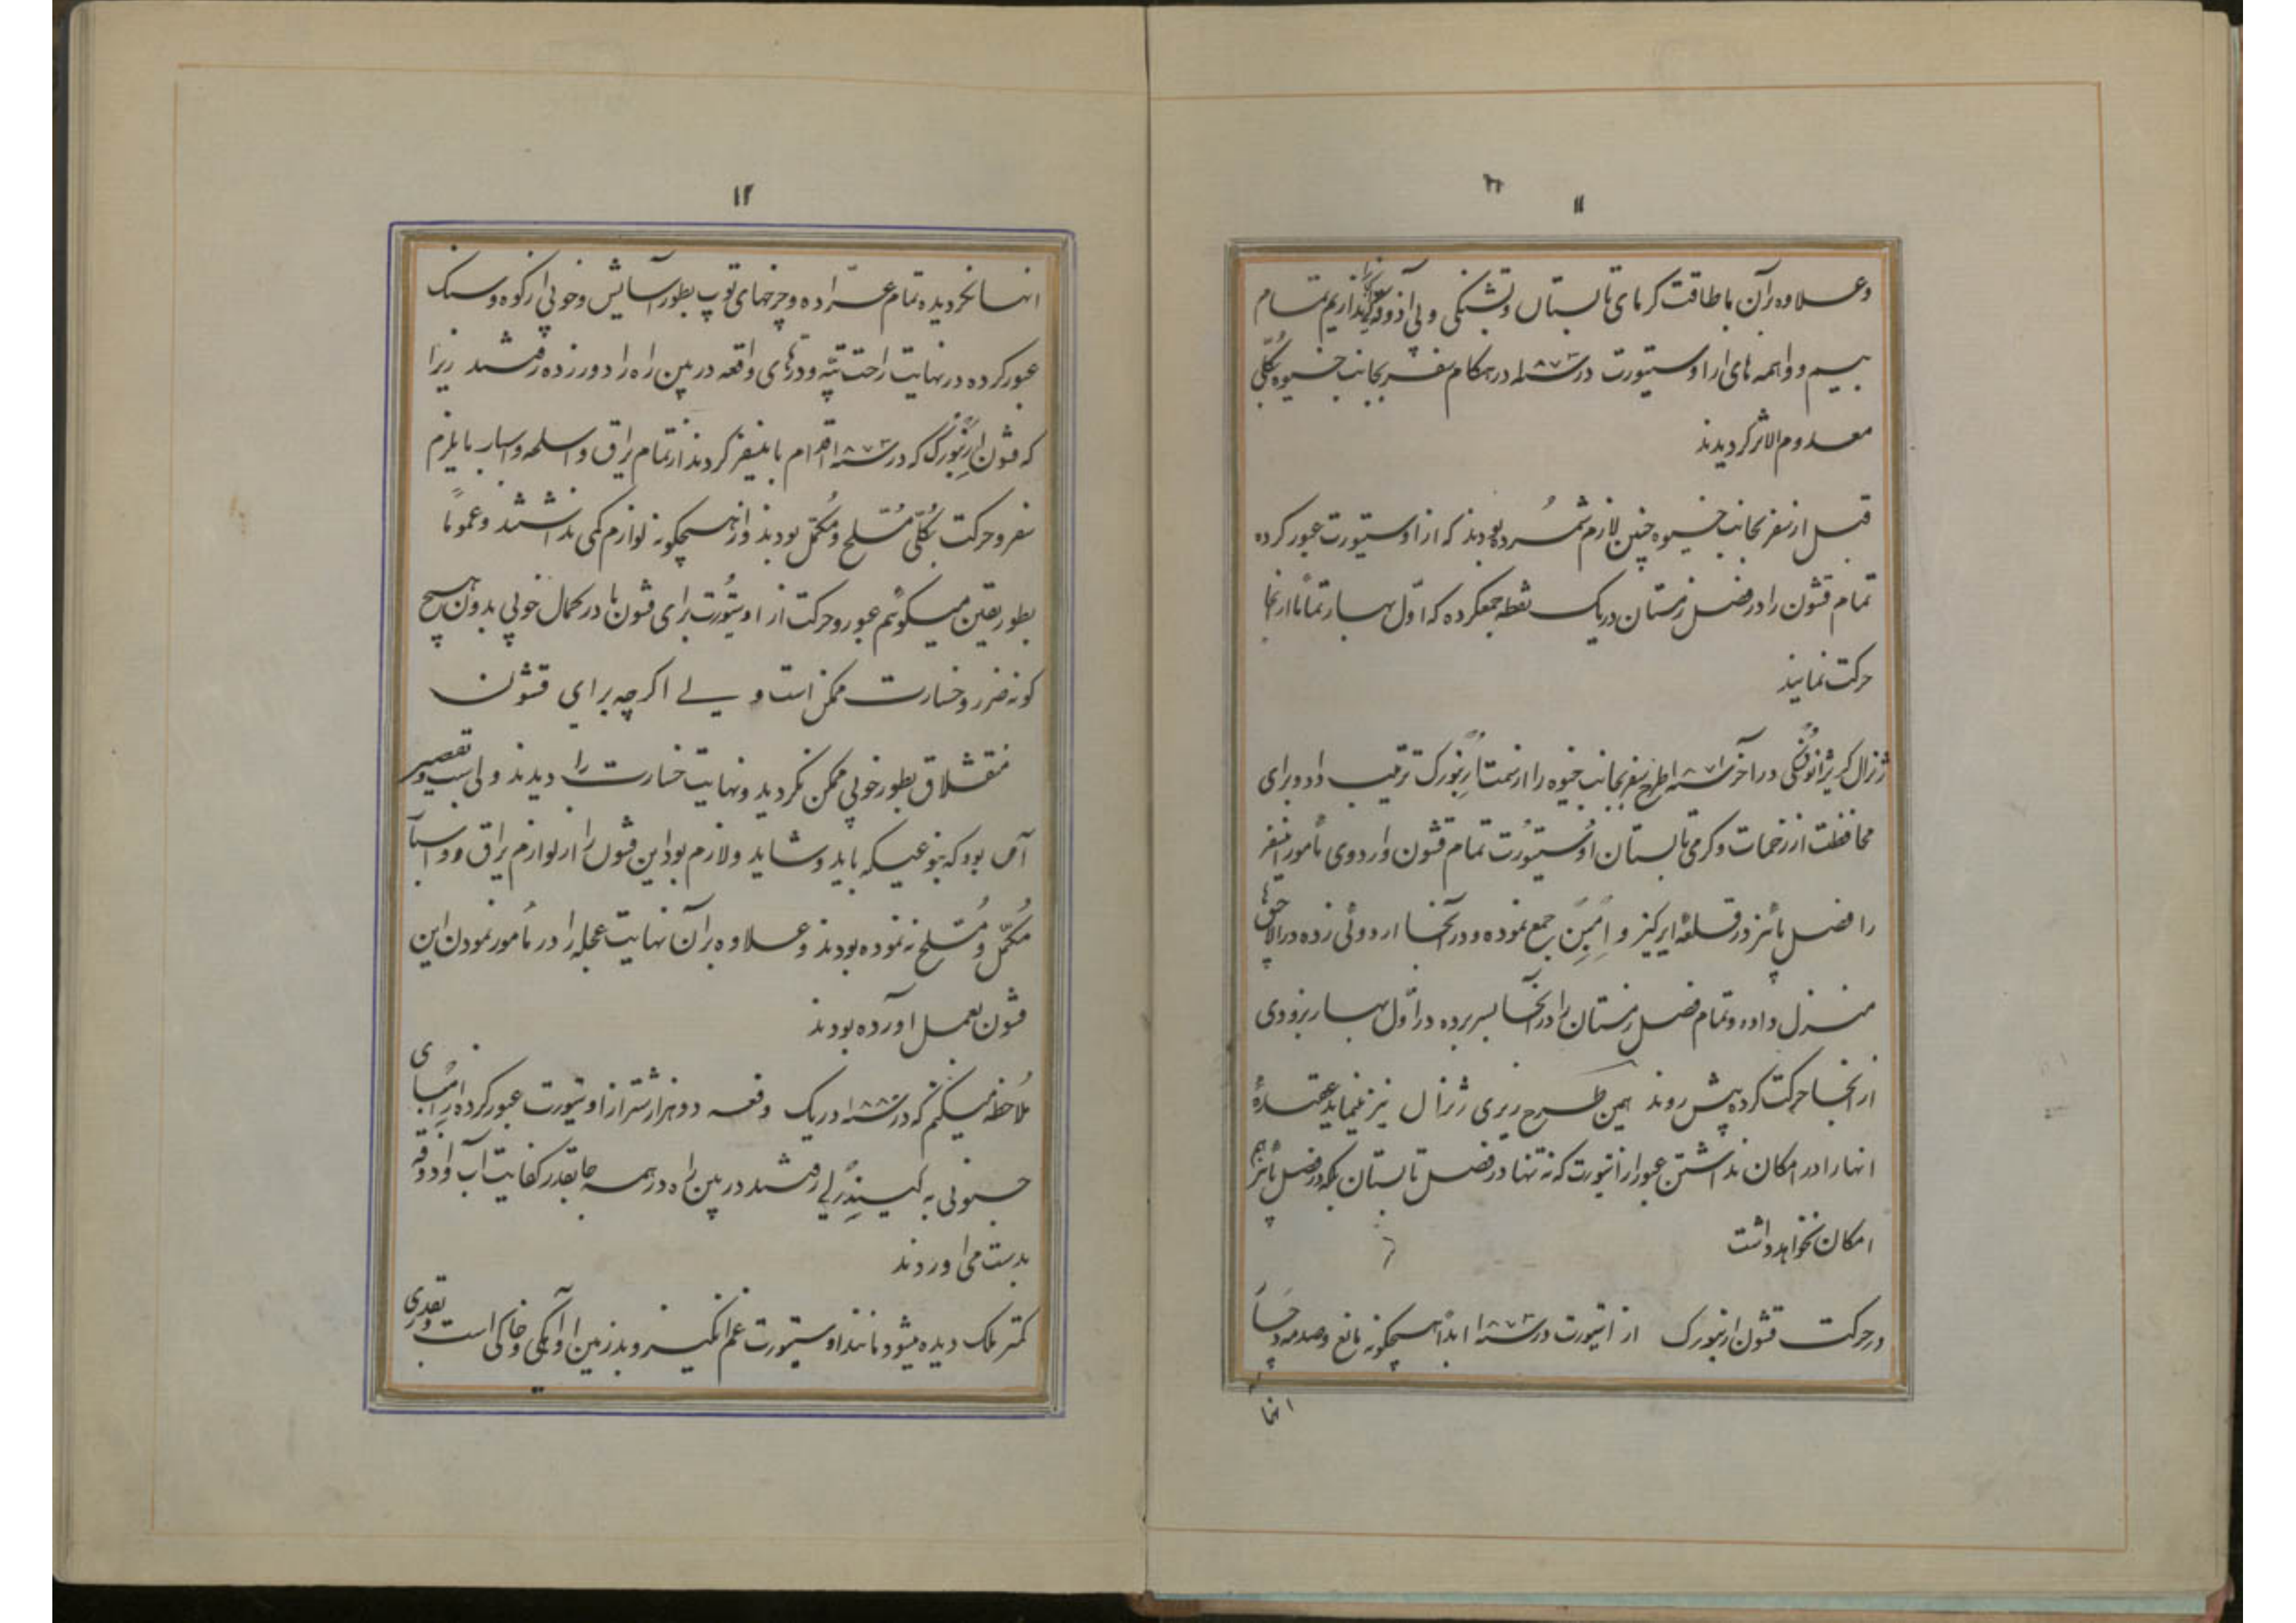 ۱۱
وعلاوه برآن باطاقت گرمای تابستان وتشنگی وبی آذوقه گی را بگذاریم تمام
بیم و واهمه های از اوستیورت در سنه ۱۸۷۳ در هنگام سفر بجانب خیوه بکلّی
معدوم الاثر گردیدند
قبل از سفر بجانب خیوه چنین لازم شمرده بودند که از اوستیورت عبور کرده
تمام قشون را در فصل زمستان در یک نقطه جمعکرده که اوّل بهار تماماً ازانجا
حرکت نمایند
ژنرال کریژانوفسکی در آخر سنه ۱۸۷۱ طرح سفر بجانب خیوه را از سمت اُرنبورک ترتیب داد و برای
محافظت از زحمات وگرمی تابستان اوُستیوُرت تمام قشون واردوی مأمور اینسفر
را فصل پائیز در قلعهٔ ایرگیز و اِمْبِنْ جمع نموده و درآنجا اردوئی زده در الاچق ها
منزل داده و تمام فصل زمستان را در آنجا بسر برده در اوّل بهار بزودی
از انجا حرکت کرده پیش روند همین طرح ریزی ژنرال نیز مینماید عقیدهٔ
انها را در امکان نداشتن عبور از اتیورت که نه تنها در فصل تابستان بلکه در فصل پائیز هم
امکان نخواهد داشت
در حرکت قشون ارنبورک از اتیورت در سنه ۱۸۷۳ ابداً هیچگونه مانع وصدمه
انها
۱۲
انها نگردیده تمام عرّاده و چرخهای توپ بطور آسایش وخوبی از کوه و سنگ
عبور کرده در نهایت راحت تپّه و درّهای واقعه در بین راه را دور زده رفتند زیرا
که قشون اُرنبورک که در سنه ۱۸۷۳ اقدام باینسفر کردند از تمام یراق واسلحه واسباب مایلزم
سفر و حرکت بکلّی مُسلّح و مُکمّل بودند و از هیچگونه لوازم کمی نداشتند وعموماً
بطور یقین میگوئم عبور و حرکت از اوستیوُرت برای قشون ها در کمال خوبی بدون هیچ
گونه ضرر و خسارت ممکن است ولی اگرچه برای قشون
منقشلاق بطور خوبی ممکن نگردید ونهایت خسارت را دیدند ولی سبب و تقصیر
آن بود که بنوعیکه باید و شاید ولازم بود این قشون را از لوازم یراق و اسباب
مُکمّل و مُسلّح نه نموده بودند و علاوه بران نهایت عجله را در مأمور نمودن این
قشون بعمل آورده بودند
مُلاحظه میکنم که در سنه ۱۸۸۰ در یک دفعه دو هزار شتر از اوتیورت عبور کرده از امبای
جنوبی به کیندِرلی رفتند در بین راه در همه جا بقدر کفایت آب و آذوقه
بدست می اوردند
کمتر ملک دیده میشود مانند اوستیورت غم انگیز و بد زمین او آهکی و خاکی است و بقدری